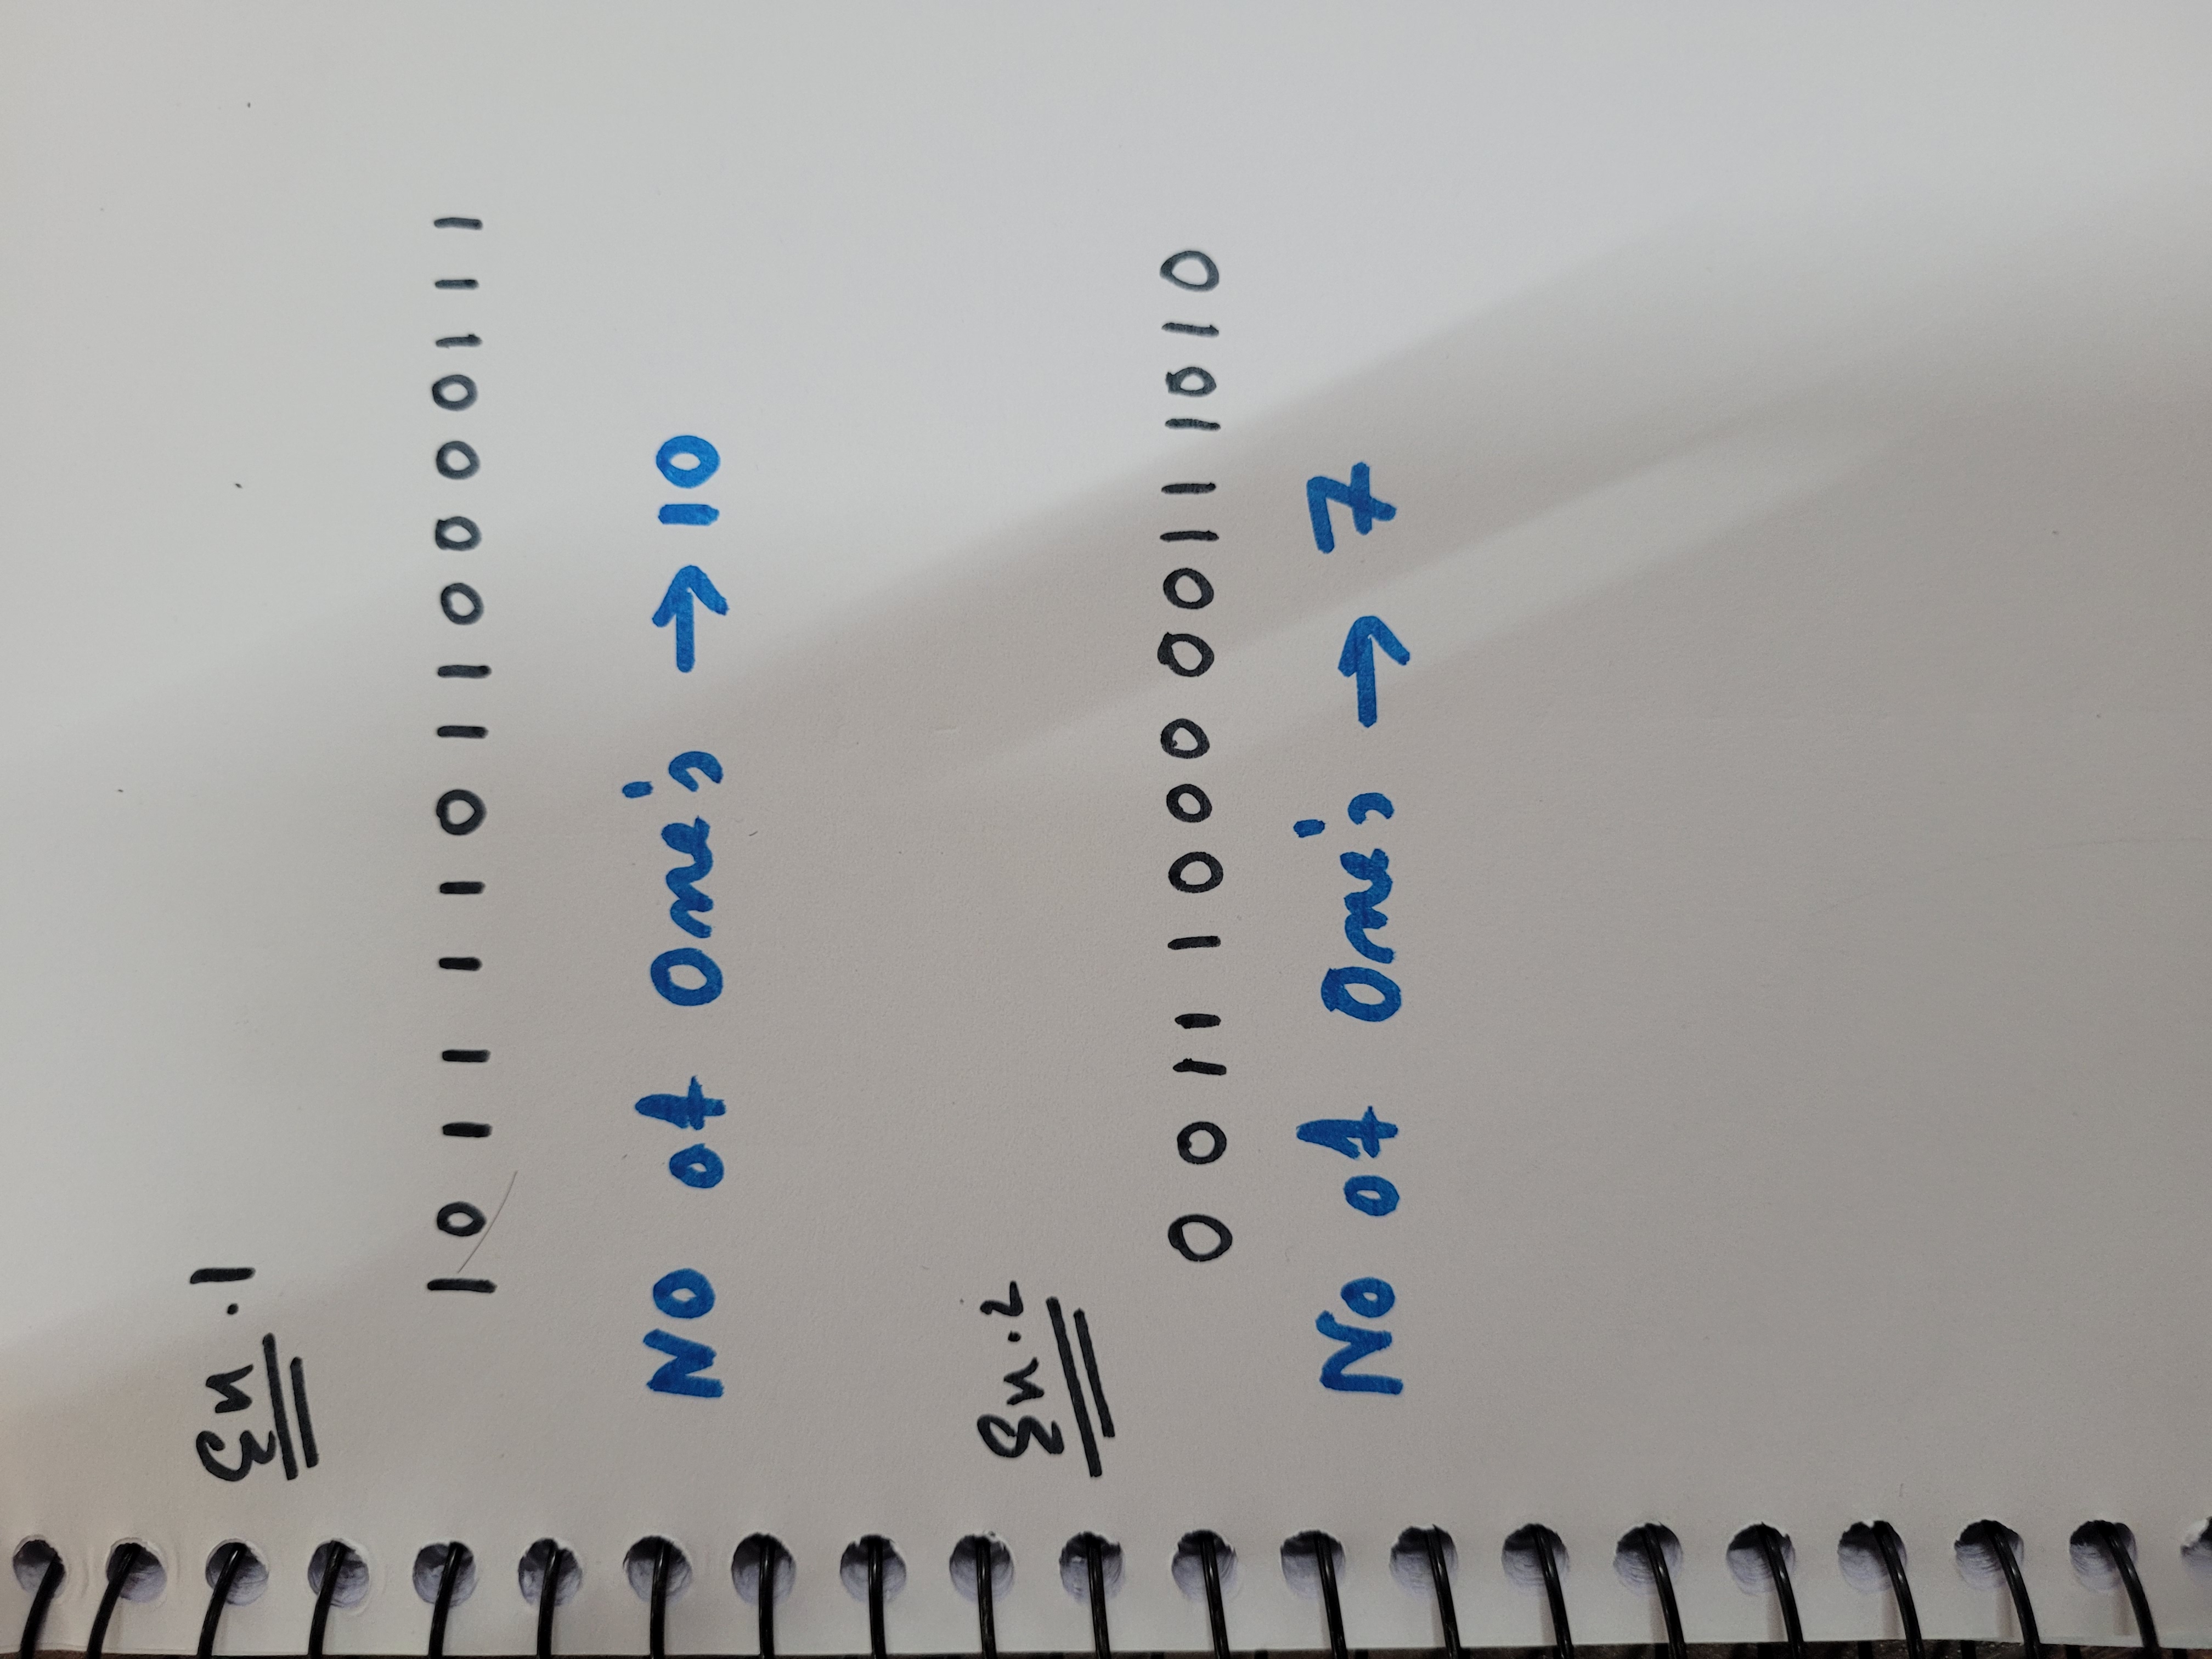 Ex.1
1 0 1 1 1 1 0 1 1 0 0 0 0 1 1 1
No of One's → 10
Ex.2
0 0 1 1 1 0 0 0 0 0 1 1 1 0 1 0
No of One's → 7